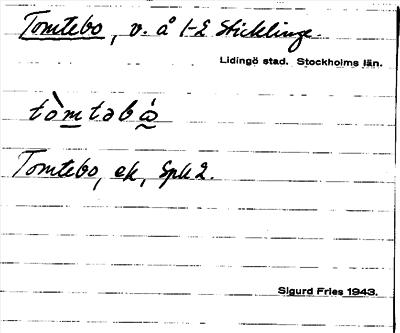 Tomtebo, v. å 1-2 Sticklinge.
Lidingö stad. Stockholms län.
tòmtəbó̰
Tomtebo, ek, Spk 2.
Sigurd Fries 1943.